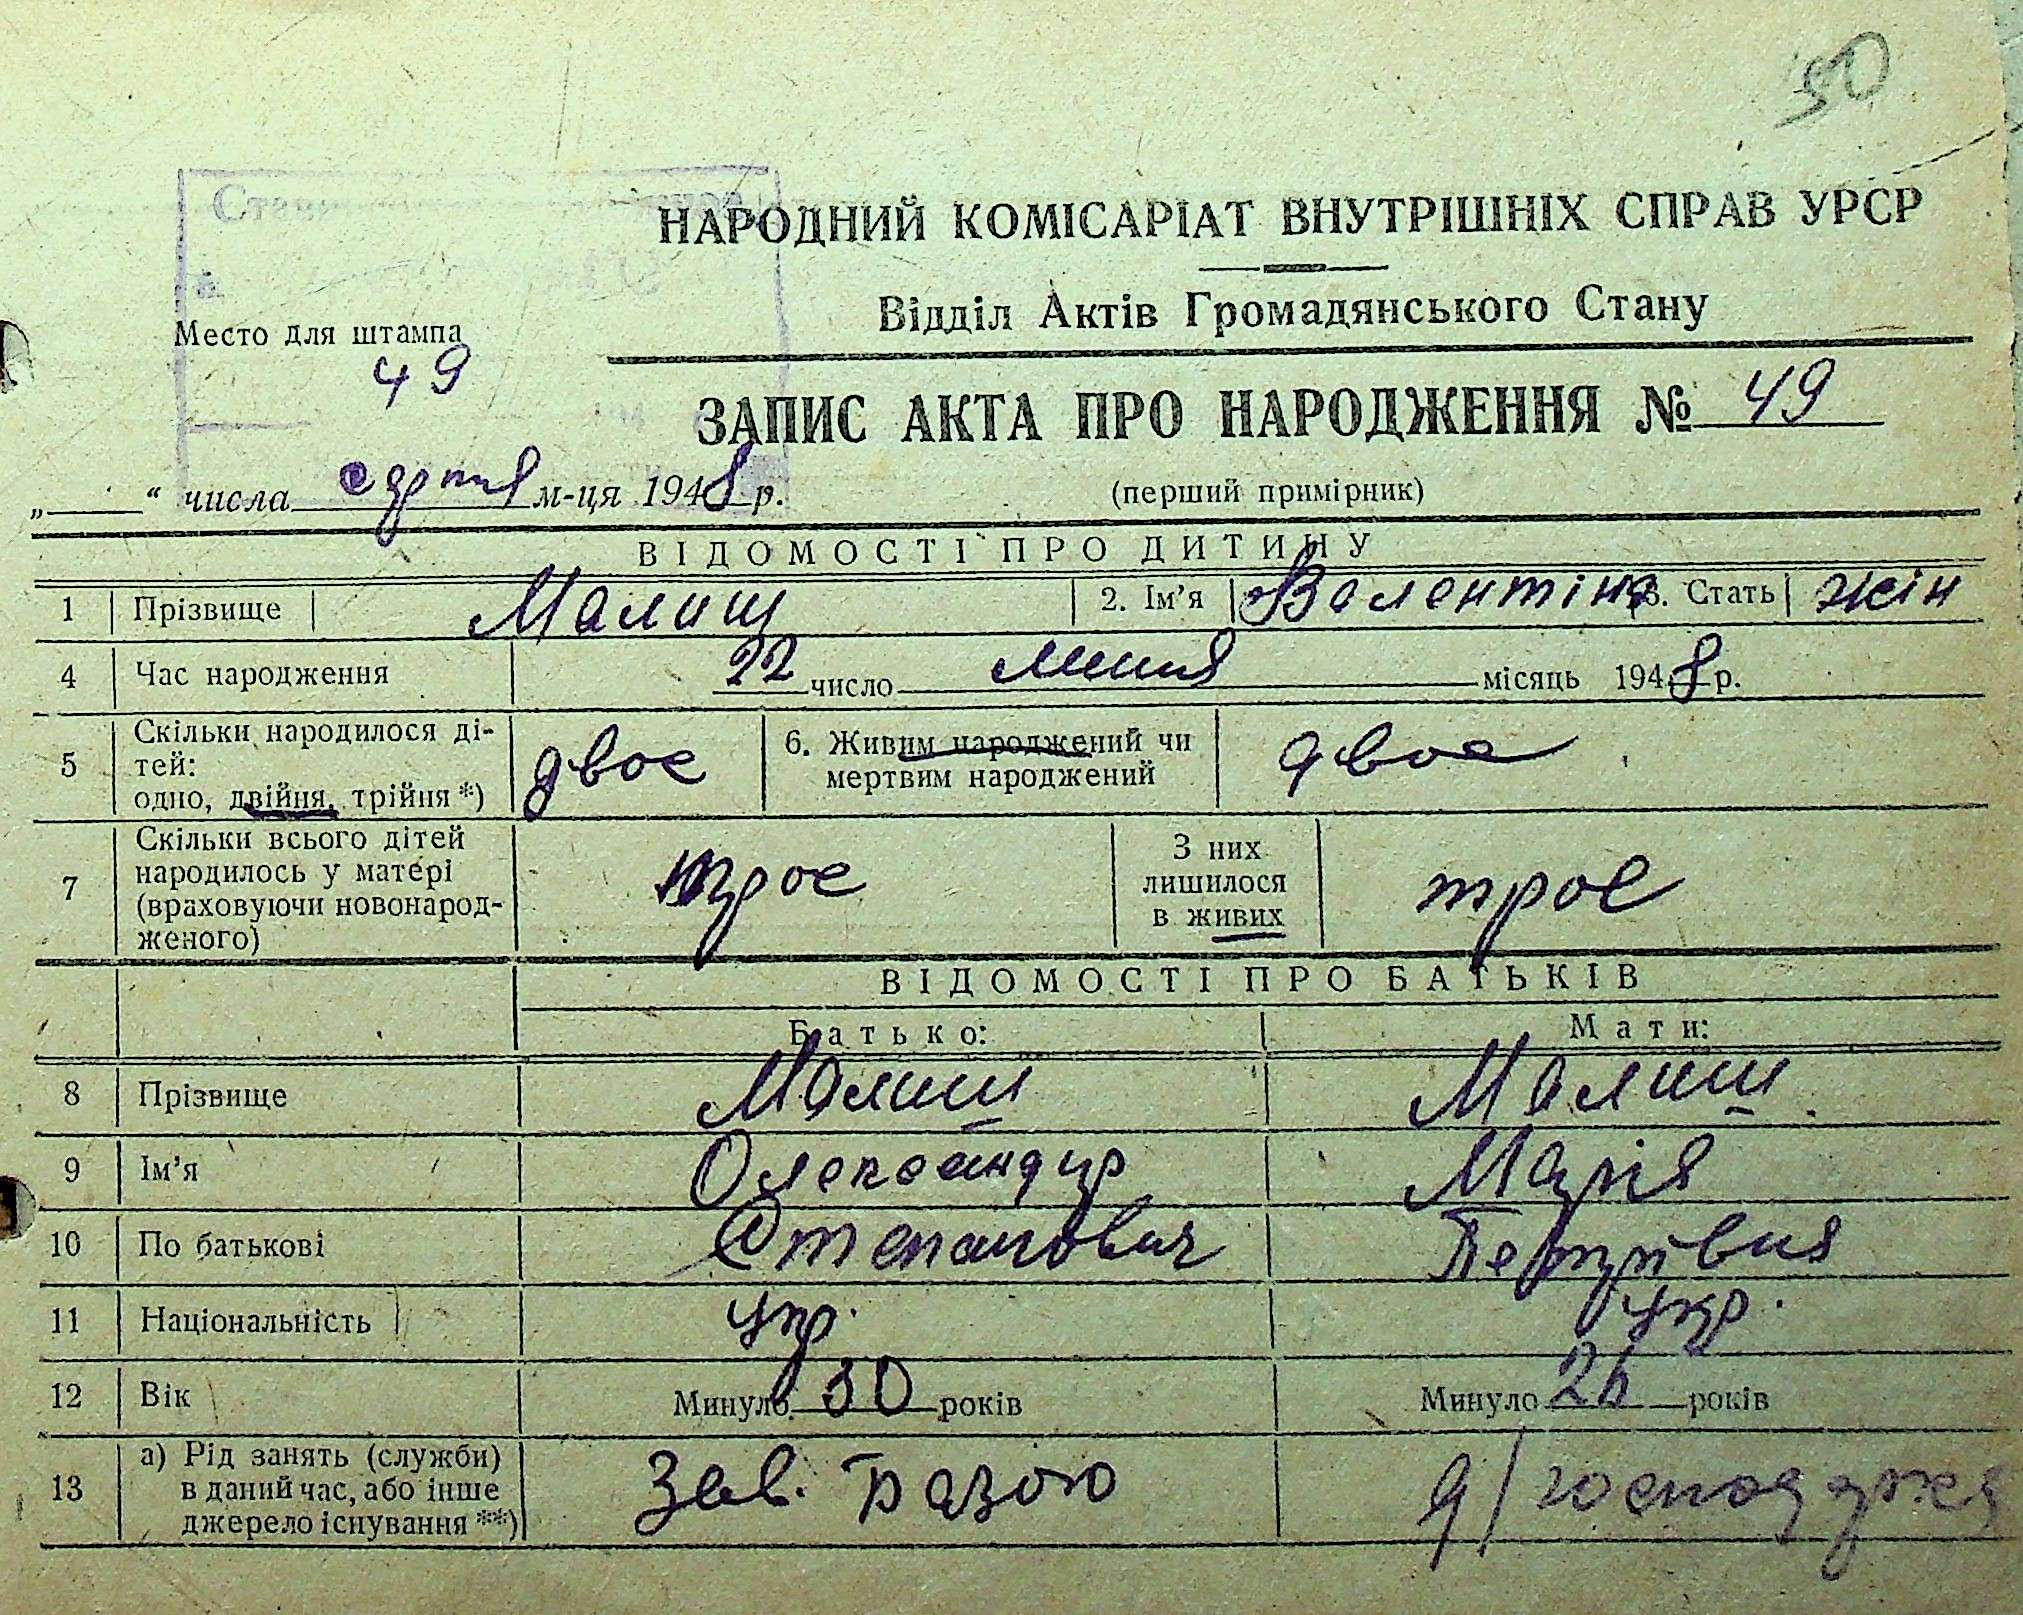 50
НАРОДНИЙ КОМІСАРІАТ ВНУТРІШНІХ СПРАВ УРСР
Відділ Актів Громадянського Стану
Место для штампа
49
ЗАПИС АКТА ПРО НАРОДЖЕННЯ № 49
(перший примірник)
„ “ числа серпня м-ця 1948 р.
ВІДОМОСТІ ПРО ДИТИНУ
1 Прізвище Малиш 2. Ім'я Валентіна 3. Стать жін
4 Час народження 22 число липня місяць 1948 р.
5 Скільки народилося ді-
тей:
одно, двійня, трійня *) двоє
6. Живим народжений чи
мертвим народжений двоє
7 Скільки всього дітей
народилось у матері
(враховуючи новонарод-
женого) троє
З них
лишилося
в живих троє
ВІДОМОСТІ ПРО БАТЬКІВ
Батько: Мати:
8 Прізвище Малиш Малиш
9 Ім'я Олександр Марія
10 По батькові Степанович Петрівня
11 Національність укр. укр.
12 Вік Минуло 30 років Минуло 26 років
13 а) Рід занять (служби)
в даний час, або інше
джерело існування **) Зав. базою д/господарка